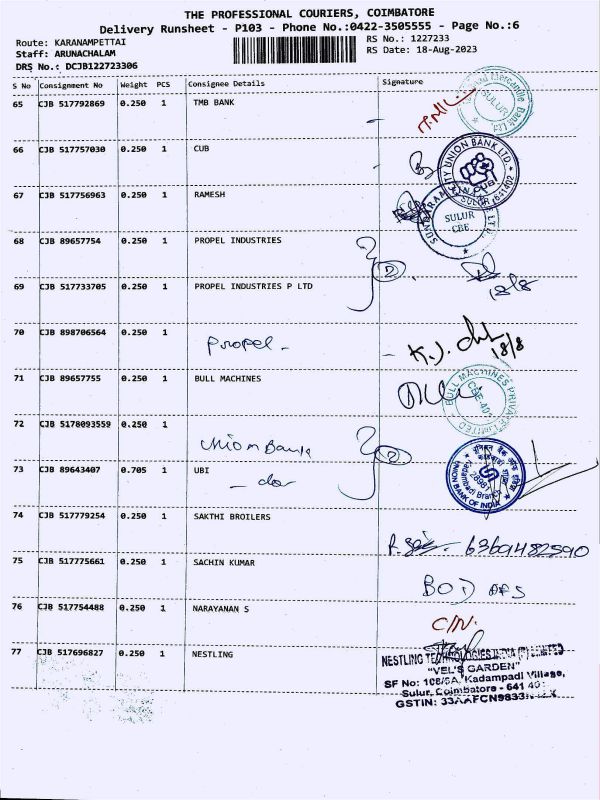 THE PROFESSIONAL COURIERS, COIMBATORE
Delivery Runsheet - P103 - Phone No.:0422-3505555 - Page No.:6
Route: KARANAMPETTAI
RS No.: 1227233
Staff: ARUNACHALAM
RS Date: 18-Aug-2023
DRS No.: DCJB122723306
S No Consignment No Weight PCS Consignee Details Signature
65 CJB 517792869 0.250 1 TMB BANK
SULUR
66 CJB 517757030 0.250 1 CUB
CITY UNION BANK LTD.
CUB
SULUR 641402
67 CJB 517756963 0.250 1 RAMESH
SULUR
CBE
68 CJB 89657754 0.250 1 PROPEL INDUSTRIES
2
69 CJB 517733705 0.250 1 PROPEL INDUSTRIES P LTD
18/8
70 CJB 898706564 0.250 1
Propel -
18/8
71 CJB 89657755 0.250 1 BULL MACHINES
BULL MACHINES PRIVATE LIMITED
72 CJB 5178093559 0.250 1
Union Bank
2
73 CJB 89643407 0.705 1 UBI
- do
UNION BANK OF INDIA
74 CJB 517779254 0.250 1 SAKTHI BROILERS
6369482590
75 CJB 517775661 0.250 1 SACHIN KUMAR
76 CJB 517754488 0.250 1 NARAYANAN S
C/N.
77 CJB 517696827 0.250 1 NESTLING
NESTLING TECHNOLOGIES INDIA (P) LIMITED
"VEL'S GARDEN"
SF No: 108/5A, Kadampadi Village,
Sulur, Coimbatore - 641 40
GSTIN: 33AAFCN9833